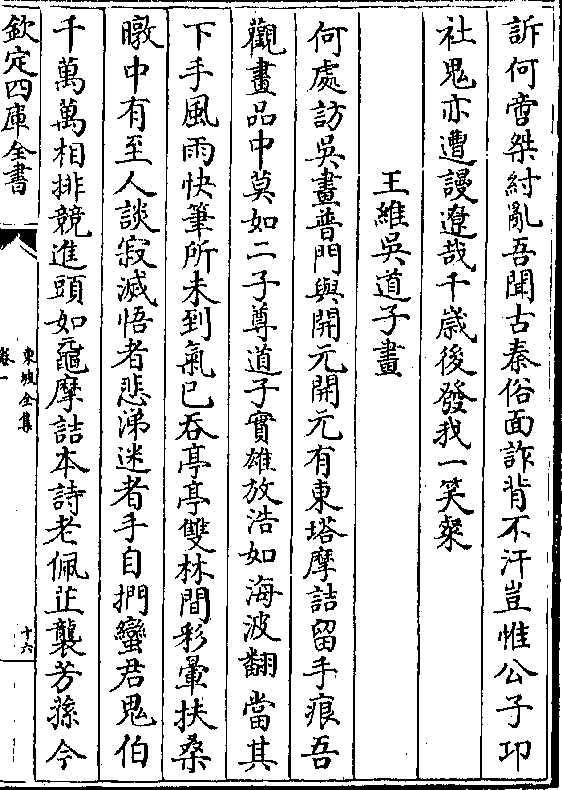 訴何啻桀紂亂吾聞古秦俗面詐背不汗豈惟公子卬
社鬼亦遭謾遼哉千歲後發我一笑粲
王維吳道子畫
何處訪吳畫普門與開元開元有東塔摩詰留手痕吾
觀畫品中莫如二子尊道子實雄放浩如海波翻當其
下手風雨快筆所未到氣已吞亭亭雙林間彩暈扶桑
暾中有至人談寂滅悟者悲涕迷者手自捫蠻君鬼伯
千萬萬相排競進頭如黿摩詰本詩老佩芷襲芳蓀今
欽定四庫全書
東坡全集
卷一
十六